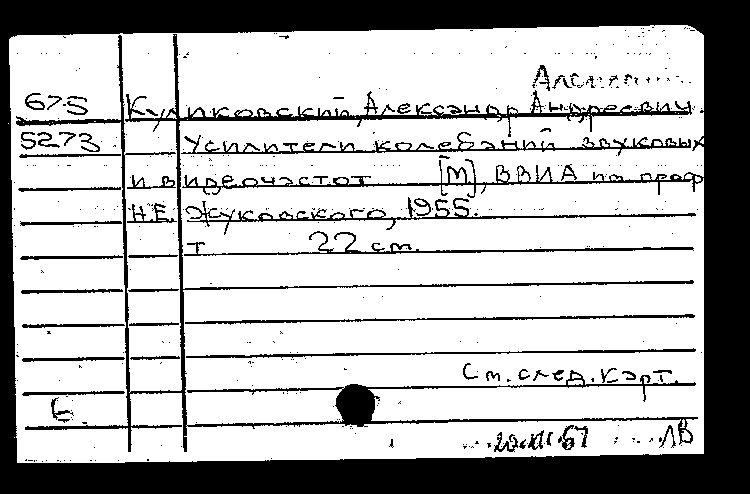 675 Куликовский, Александр Андреевич.
5273 Усилители колебаний звуковых
и видеочастот [М], ВВИА им проф
Н.Е. Жуковского, 1955.
т 22 см.
См. след. карт.
6
ЛВ